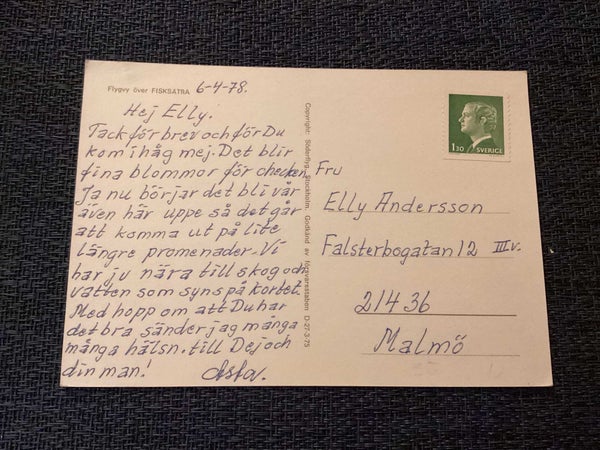 Flygvy över FISKSÄTRA
6-4-78.
Hej Elly.
Tack för brev och för Du
kom ihåg mej. Det blir
fina blommor för checken.
Ja nu börjar det bli vår
även här uppe så det går
att komma ut på lite
längre promenader. Vi
har ju nära till skog och
vatten som syns på kortet.
Med hopp om att Du har
det bra sänder jag många
många hälsn. till Dej och
din man!
Asta.
Copyright: Söderflyg, Stockholm. Godkänd av försvarsstaben D-27-3-75
1.30 SVERIGE
Fru
Elly Andersson
Falsterbogatan 12 IIIv.
21436
Malmö